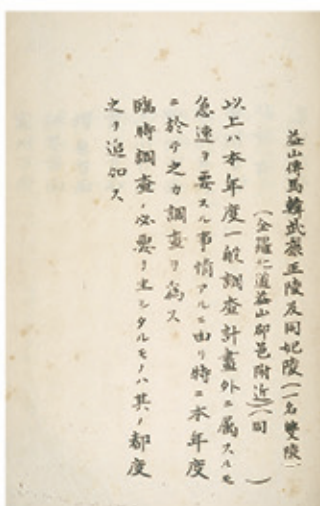 益山傳馬韓武康王陵及同妃陵(一名雙陵)
(全羅北道益山郡邑附近)(同)
以上ハ本年度一般調査計畫外ニ屬スルモ
急速ヲ要スル事情アルニ由リ特ニ本年度
ニ於テ之カ調査ヲ爲ス
臨時調査ノ必要ヲ生シタルモノハ其ノ都度
之ヲ追加ス